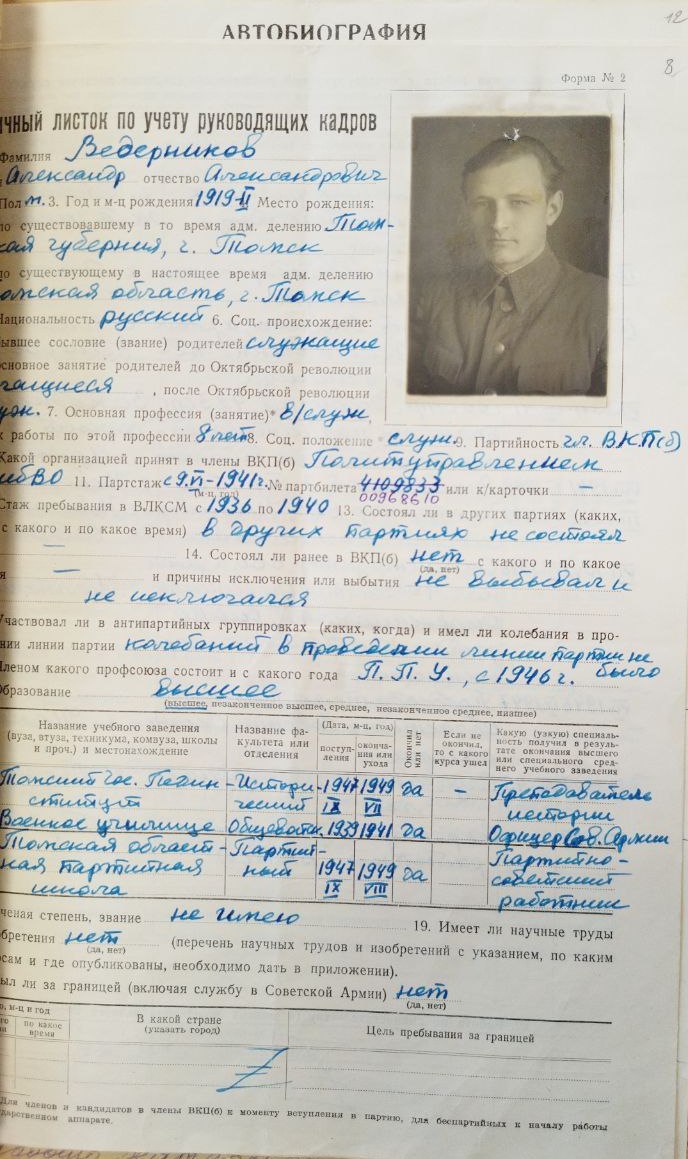 12
АВТОБИОГРАФИЯ
8
Форма № 2
ичный листок по учету руководящих кадров
Фамилия Ведерников
Александр отчество Александрович
Пол м. 3. Год и м-ц рождения 1919-II Место рождения:
по существовавшему в то время адм. делению Том-
кая губерния, г. Томск
по существующему в настоящее время адм. делению
омская область, г. Томск
Национальность русский 6. Соц. происхождение:
бывшее сословие (звание) родителей служащие
основное занятие родителей до Октябрьской революции
чащиеся , после Октябрьской революции
7. Основная профессия (занятие)* в/служ,
ж работы по этой профессии 8 лет 8. Соц. положение * служ. 9. Партийность чл. ВКП(б)
Какой организацией принят в члены ВКП(б) Политуправлением
ибВО 11. Партстаж с 9.VI-1941г. № партбилета 4109833 или к/карточки –
(м-ц, год) 00968610
Стаж пребывания в ВЛКСМ с 1936 по 1940 13. Состоял ли в других партиях (каких,
с какого и по какое время) в других партиях не состоял
— 14. Состоял ли ранее в ВКП(б) нет с какого и по какое
(да, нет)
я — и причины исключения или выбытия не выбывал и
не исключался
Участвовал ли в антипартийных группировках (каких, когда) и имел ли колебания в про-
нии линии партии колебаний в проведении линии партии не
было
Членом какого профсоюза состоит и с какого года П.П.У., с 1946 г.
Образование высшее
(высшее, незаконченное высшее, среднее, незаконченное среднее, низшее)
Название учебного заведения (вуза, втуза, техникума, комвуза, школы и проч.) и местонахождение | Название факультета или отделения | (Дата, м-ц, год) поступления | окончания или ухода | Окончил или нет | Если не окончил, то с какого курса ушел | Какую (узкую) специальность получил в результате окончания высшего или специального среднего учебного заведения
Томский Гос. Педин- | Истори- | 1947 | 1949 | да | – | Преподаватель
ститут | ческий | IX | VII | истории
Военное училище | Общевойск. | 1939 | 1941 | да | Офицер Сов. Армии
Томская област- | Партий- | Партийно-
ная партийная | ный | 1947 | 1949 | да | советский
школа | IX | VIII | работник
ченая степень, звание не имею 19. Имеет ли научные труды
обретения нет (перечень научных трудов и изобретений с указанием, по каким
(да, нет)
осам и где опубликованы, необходимо дать в приложении).
ыл ли за границей (включая службу в Советской Армии) нет
(да, нет)
о, м-ц и год | В какой стране | Цель пребывания за границей
по какое время | (указать город)
Для членов и кандидатов в члены ВКП(б) к моменту вступления в партию, для беспартийных к началу работы
дарственном аппарате.